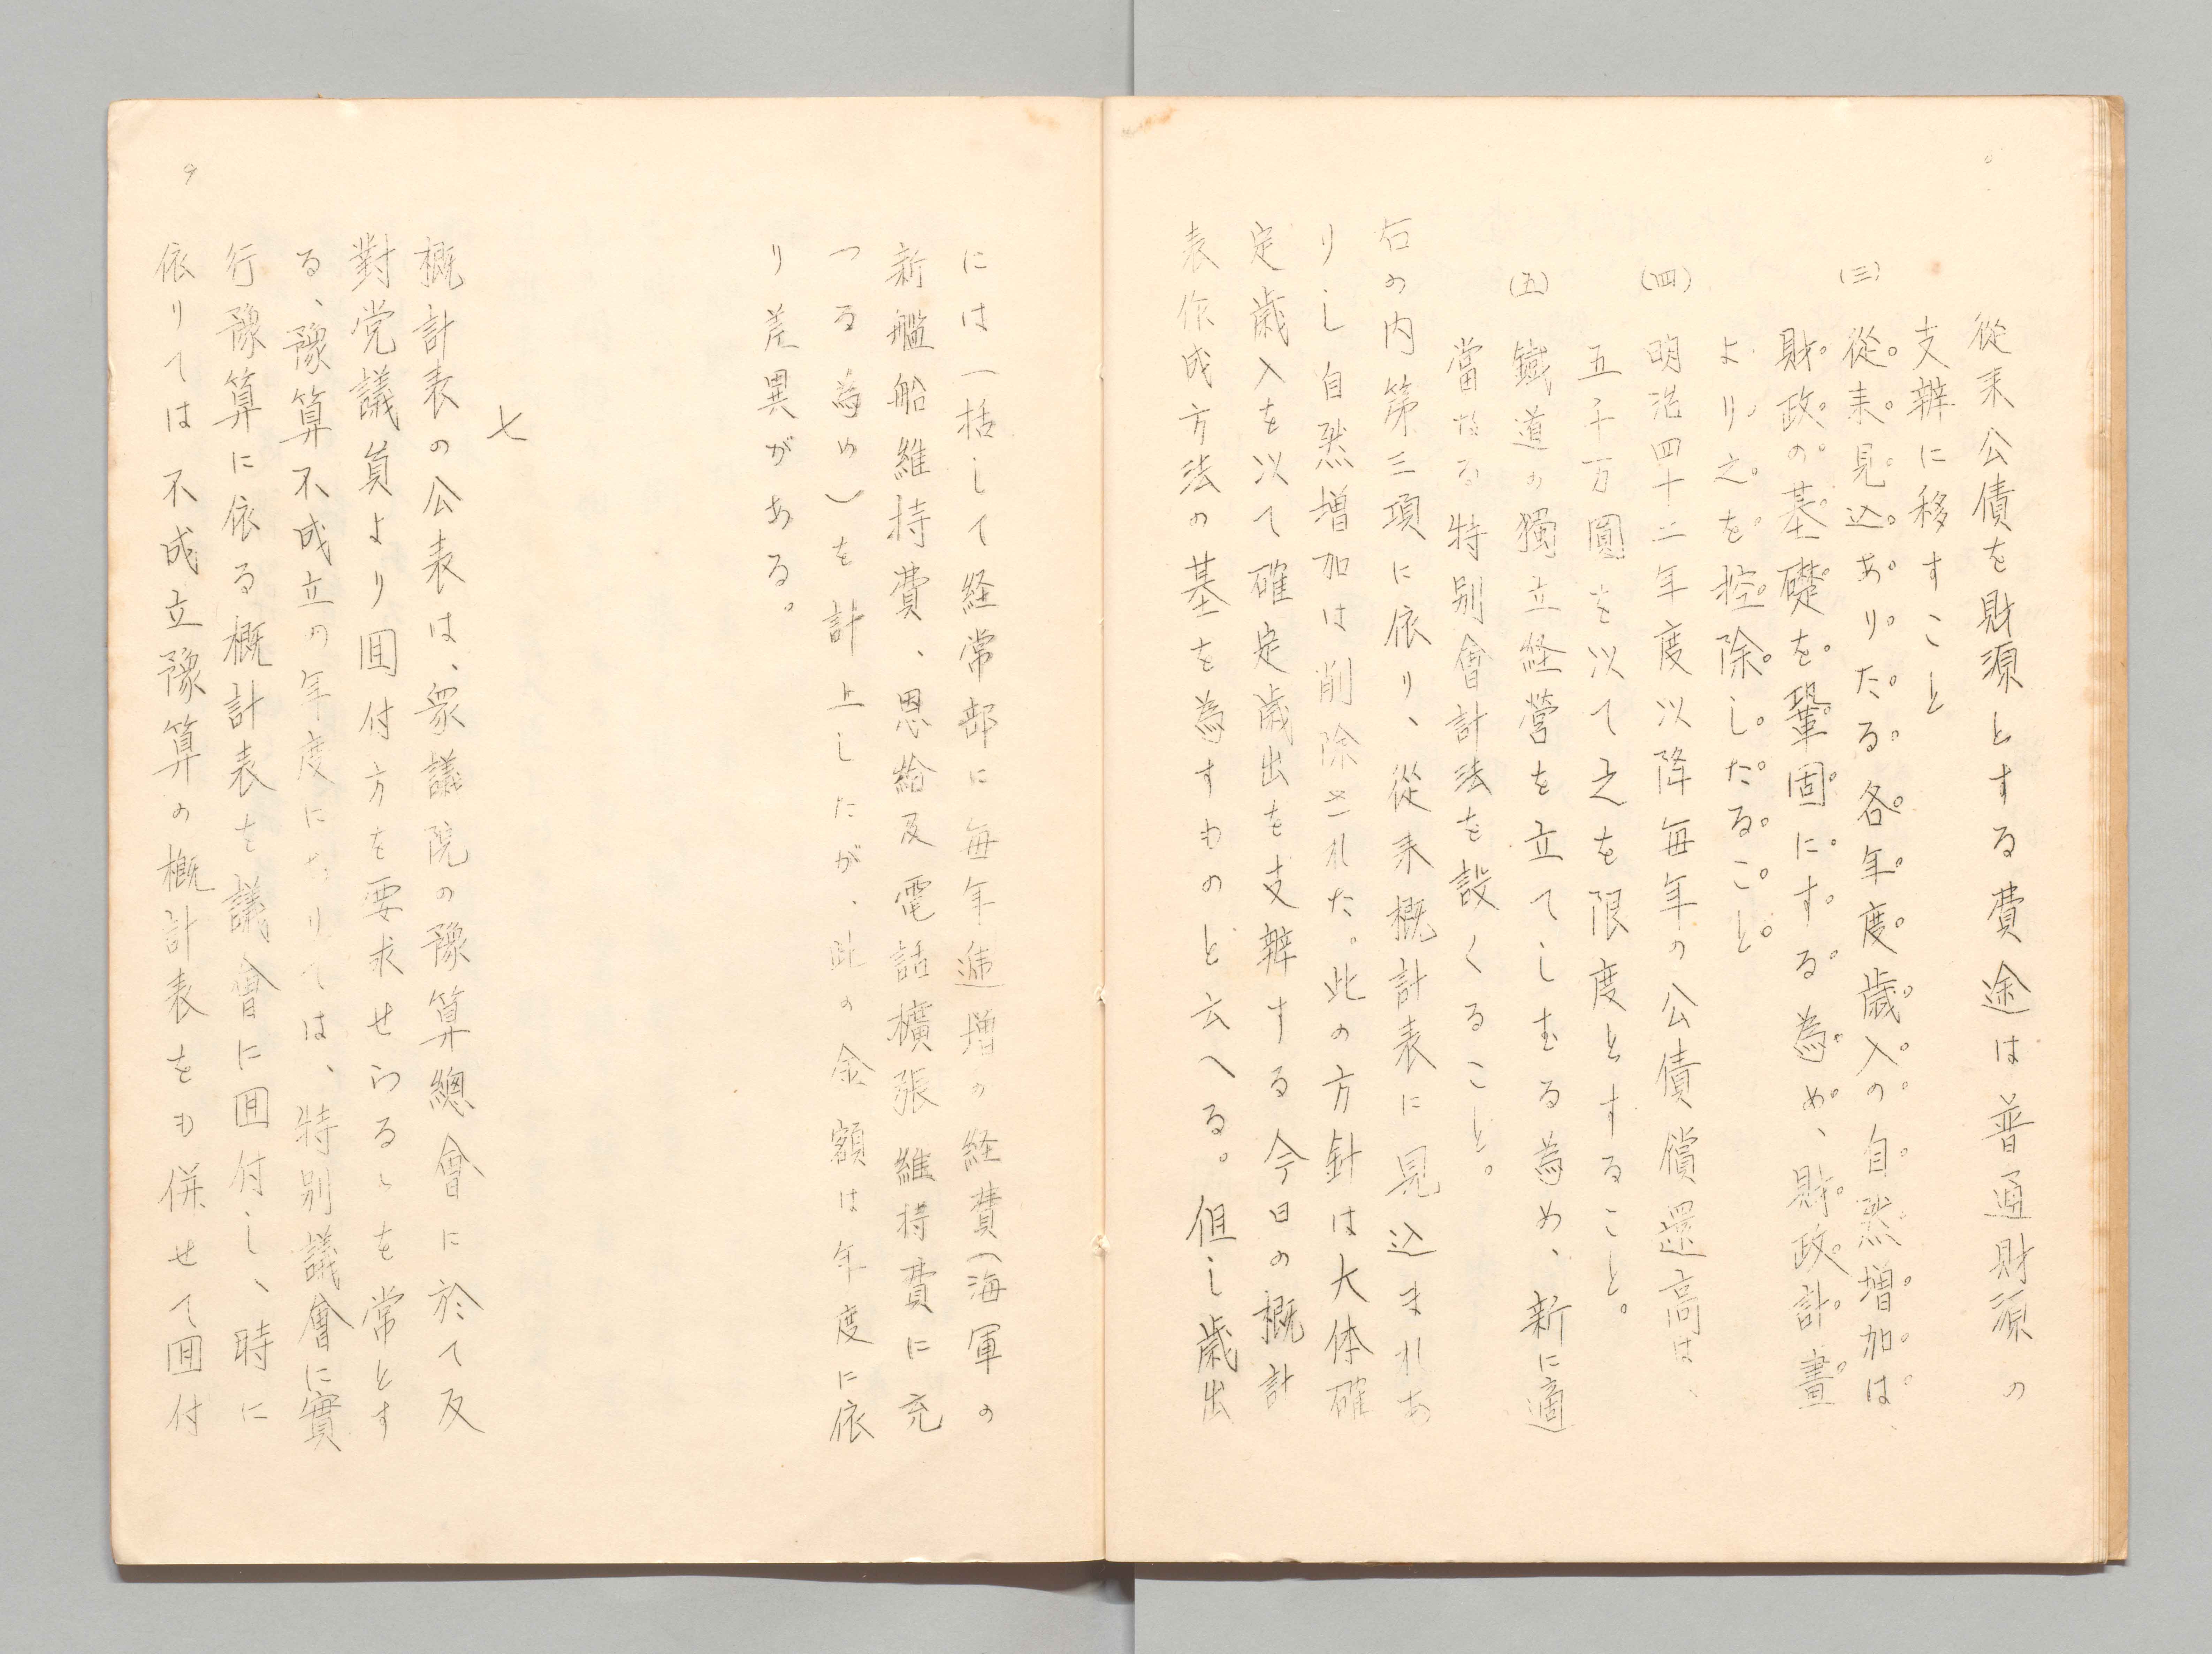 從来公債を財源とする費途は普通財源の
支辨に移すこと
(三) 從来見込ありたる各年度歳入の自然増加は、
財政の基礎を鞏固にする為め、財政計畫
より之を控除したること
(四) 明治四十二年度以降毎年の公債償還高は、
五千万圓を以て之を限度とすること。
(五) 鐵道の獨立経營を立てしむる為め、新に適
當なる特別會計法を設くること。
右の内第三項に依り、從来概計表に見込まれあ
りし自然増加は削除された。此の方針は大体確
定歳入を以て確定歳出を支辨する今日の概計
表作成方法の基を為すものと云へる。但し歳出
には一括して経常部に毎年逓増の経費(海軍の
新艦船維持費、恩給及電話擴張維持費に充
つる為め)を計上したが、此の金額は年度に依
り差異がある。
七
概計表の公表は、衆議院の豫算總會に於て反
對党議員より囬付方を要求せらるゝを常とす
る、豫算不成立の年度にありては、特別議會に實
行豫算に依る概計表を議會に囬付し、時に
依りては不成立豫算の概計表をも併せて囬付